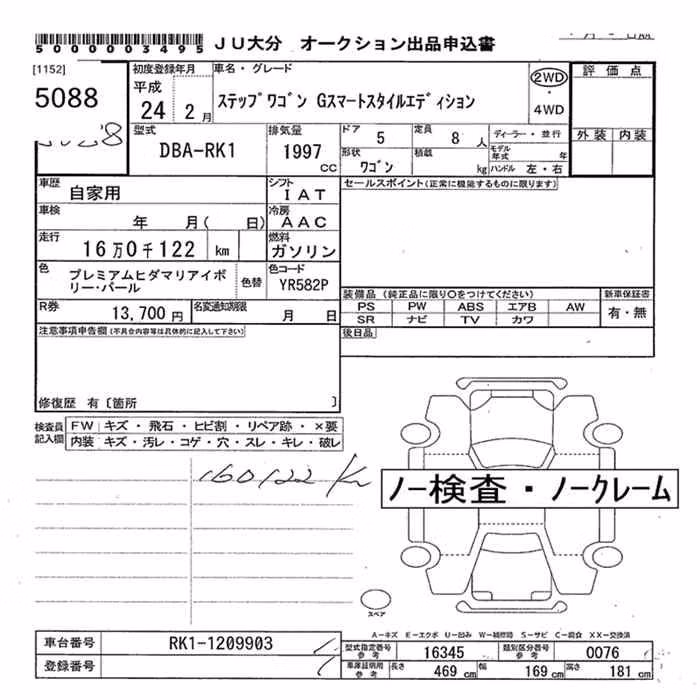 5000003495 JU大分 オークション出品申込書
[1152]
5088
初度登録年月 平成 24 2月
車名・グレード
ステップワゴン Gスマートスタイルエディション
2WD・4WD
評価点
外装 内装
型式 DBA-RK1
排気量 1997 cc
ドア 5
定員 8 人
形状 ワゴン
積載 kg
ディーラー・並行
モデル年式 年
ハンドル 左・右
車歴 自家用
シフト IAT
車検 年 月( 日)
冷房 AAC
走行 16万0千122 km
燃料 ガソリン
色 プレミアムヒダマリアイボリー・パール
色替
色コード YR582P
R券 13,700 円
名変通知期限 月 日
セールスポイント(正常に機能するものに限ります)
装備品(純正品に限り○をつけてください)
PS PW ABS エアB AW
SR ナビ TV カワ
新車保証書 有・無
後日品
注意事項申告欄(不具合内容等は具体的に記入して下さい)
修復歴 有〔箇所 〕
検査員記入欄
FW キズ・飛石・ヒビ割・リペア跡・×要
内装 キズ・汚レ・コゲ・穴・スレ・キレ・破レ
160122 K
ノー検査・ノークレーム
スペア
A-キズ E-エクボ U-凹み W-補修跡 S-サビ C-腐食 XX-交換済
車台番号 RK1-1209903
登録番号
型式指定番号 参考 16345
類別区分番号 参考 0076
車庫証明用 参考 長さ 469 cm 幅 169 cm 高さ 181 cm